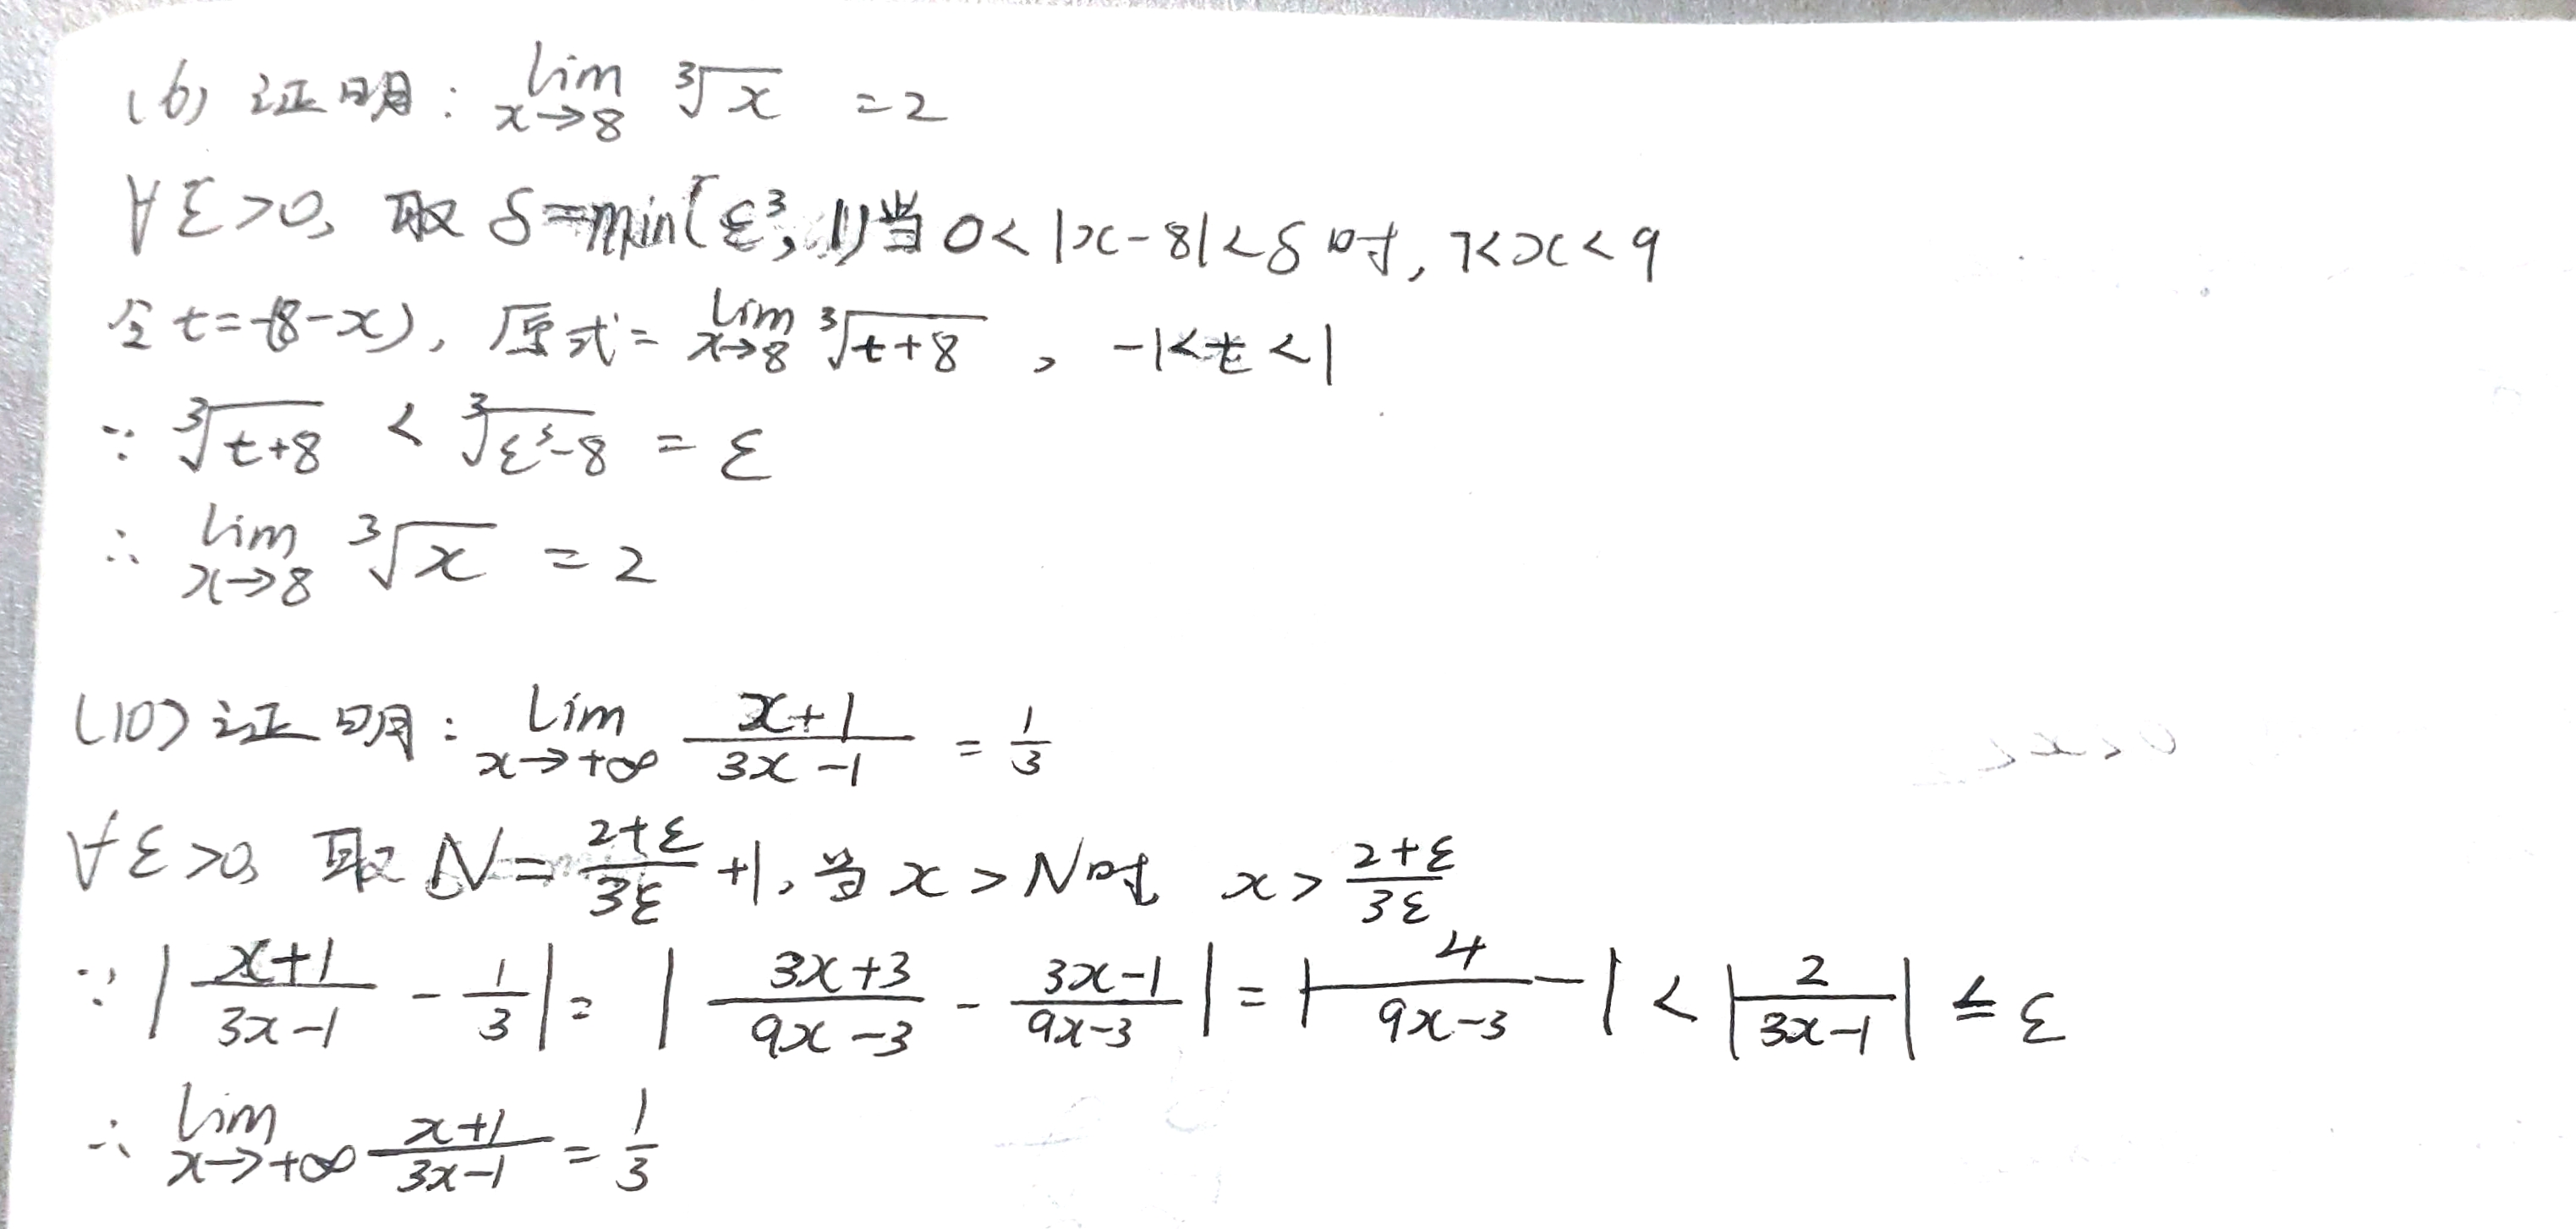 (6) 证明: lim_{x→8} ∛x = 2
∀ε>0, 取 δ=min(ε³, 1)当 0<|x-8|<δ时, 7<x<9
令 t=-(8-x), 原式= lim_{x→8} ∛(t+8) , -1<t<1
∵ ∛(t+8) < ∛(ε³-8) = ε
∴ lim_{x→8} ∛x = 2
(10) 证明: lim_{x→+∞} (x+1)/(3x-1) = 1/3
∀ε>0, 取 N= (2+ε)/(3ε) +1, 当 x>N时 x> (2+ε)/(3ε)
∵ |(x+1)/(3x-1) - 1/3| = |(3x+3)/(9x-3) - (3x-1)/(9x-3)| = |4/(9x-3)| < |2/(3x-1)| ≤ ε
∴ lim_{x→+∞} (x+1)/(3x-1) = 1/3